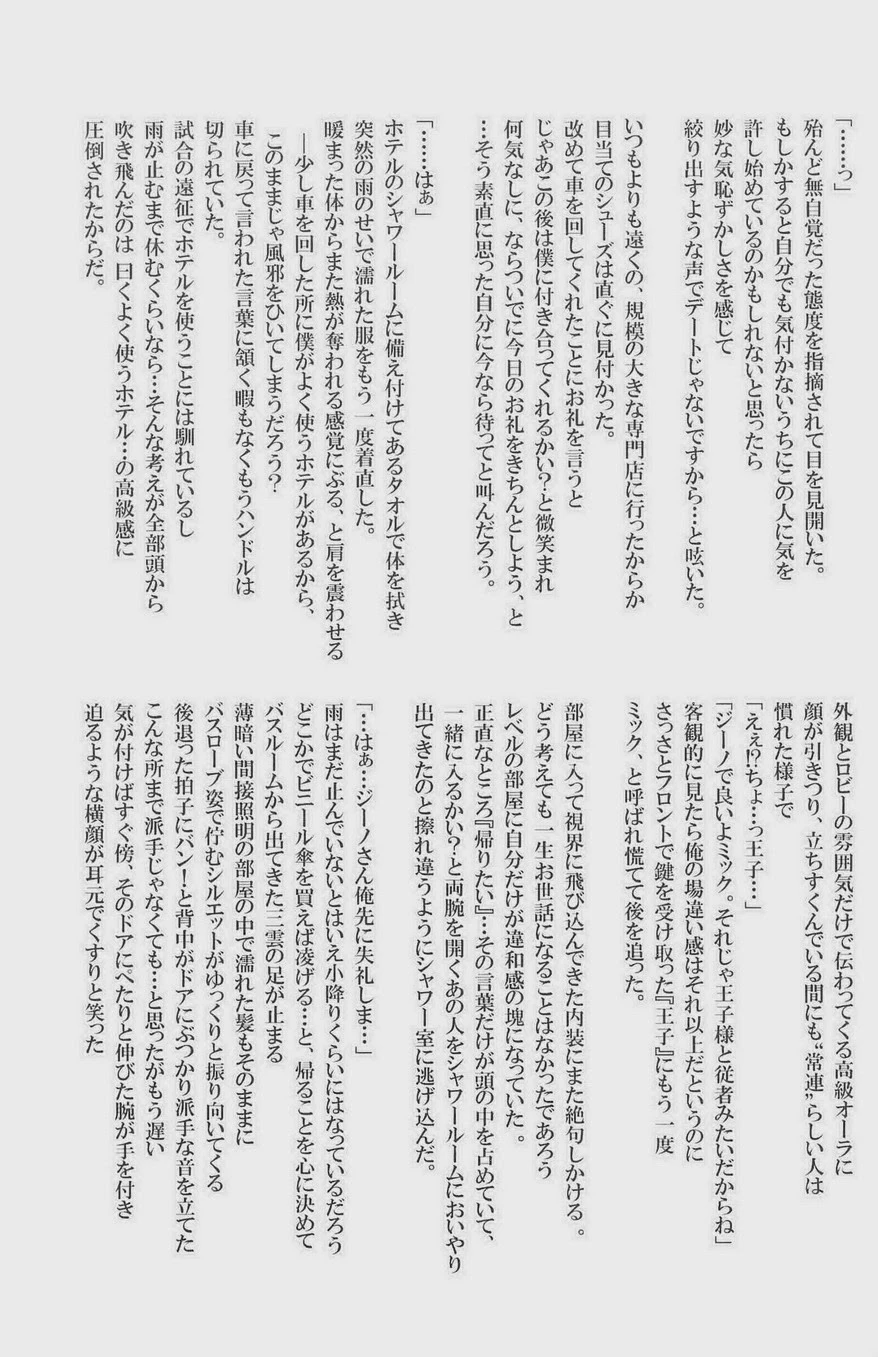 「……っ」
殆んど無自覚だった態度を指摘されて目を見開いた。
もしかすると自分でも気付かないうちにこの人に気を
許し始めているのかもしれないと思ったら
妙な気恥ずかしさを感じて
絞り出すような声でデートじゃないですから…と呟いた。
いつもよりも遠くの、規模の大きな専門店に行ったからか
目当てのシューズは直ぐに見付かった。
改めて車を回してくれたことにお礼を言うと
じゃあこの後は僕に付き合ってくれるかい？と微笑まれ
何気なしに、ならついでに今日のお礼をきちんとしよう、と
…そう素直に思った自分に今なら待ってと叫んだだろう。
「……はぁ」
ホテルのシャワールームに備え付けてあるタオルで体を拭き
突然の雨のせいで濡れた服をもう一度着直した。
暖まった体からまた熱が奪われる感覚にぶる、と肩を震わせる
―少し車を回した所に僕がよく使うホテルがあるから、
このままじゃ風邪をひいてしまうだろう？
車に戻って言われた言葉に頷く暇もなくもうハンドルは
切られていた。
試合の遠征でホテルを使うことには馴れているし
雨が止むまで休むくらいなら…そんな考えが全部頭から
吹き飛んだのは 曰くよく使うホテル…の高級感に
圧倒されたからだ。
外観とロビーの雰囲気だけで伝わってくる高級オーラに
顔が引きつり、立ちすくんでいる間にも“常連”らしい人は
慣れた様子で
「えぇ!?ちょ…っ王子…」
「ジーノで良いよミック。それじゃ王子様と従者みたいだからね」
客観的に見たら俺の場違い感はそれ以上だというのに
さっさとフロントで鍵を受け取った『王子』にもう一度
ミック、と呼ばれ慌てて後を追った。
部屋に入って視界に飛び込んできた内装にまた絶句しかける。
どう考えても一生お世話になることはなかったであろう
レベルの部屋に自分だけが違和感の塊になっていた。
正直なところ『帰りたい』…その言葉だけが頭の中を占めていて、
一緒に入るかい？と両腕を開くあの人をシャワールームにおいやり
出てきたのと擦れ違うようにシャワー室に逃げ込んだ。
「…はぁ…ジーノさん俺先に失礼しま…」
雨はまだ止んでいないとはいえ小降りくらいにはなっているだろう
どこかでビニール傘を買えば凌げる…と、帰ることを心に決めて
バスルームから出てきた三雲の足が止まる
薄暗い間接照明の部屋の中で濡れた髪もそのままに
バスローブ姿で佇むシルエットがゆっくりと振り向いてくる
後退った拍子にバン！と背中がドアにぶつかり派手な音を立てた
こんな所まで派手じゃなくても…と思ったがもう遅い
気が付けばすぐ傍、そのドアにぺたりと伸びた腕が手を付き
迫るような横顔が耳元でくすりと笑った